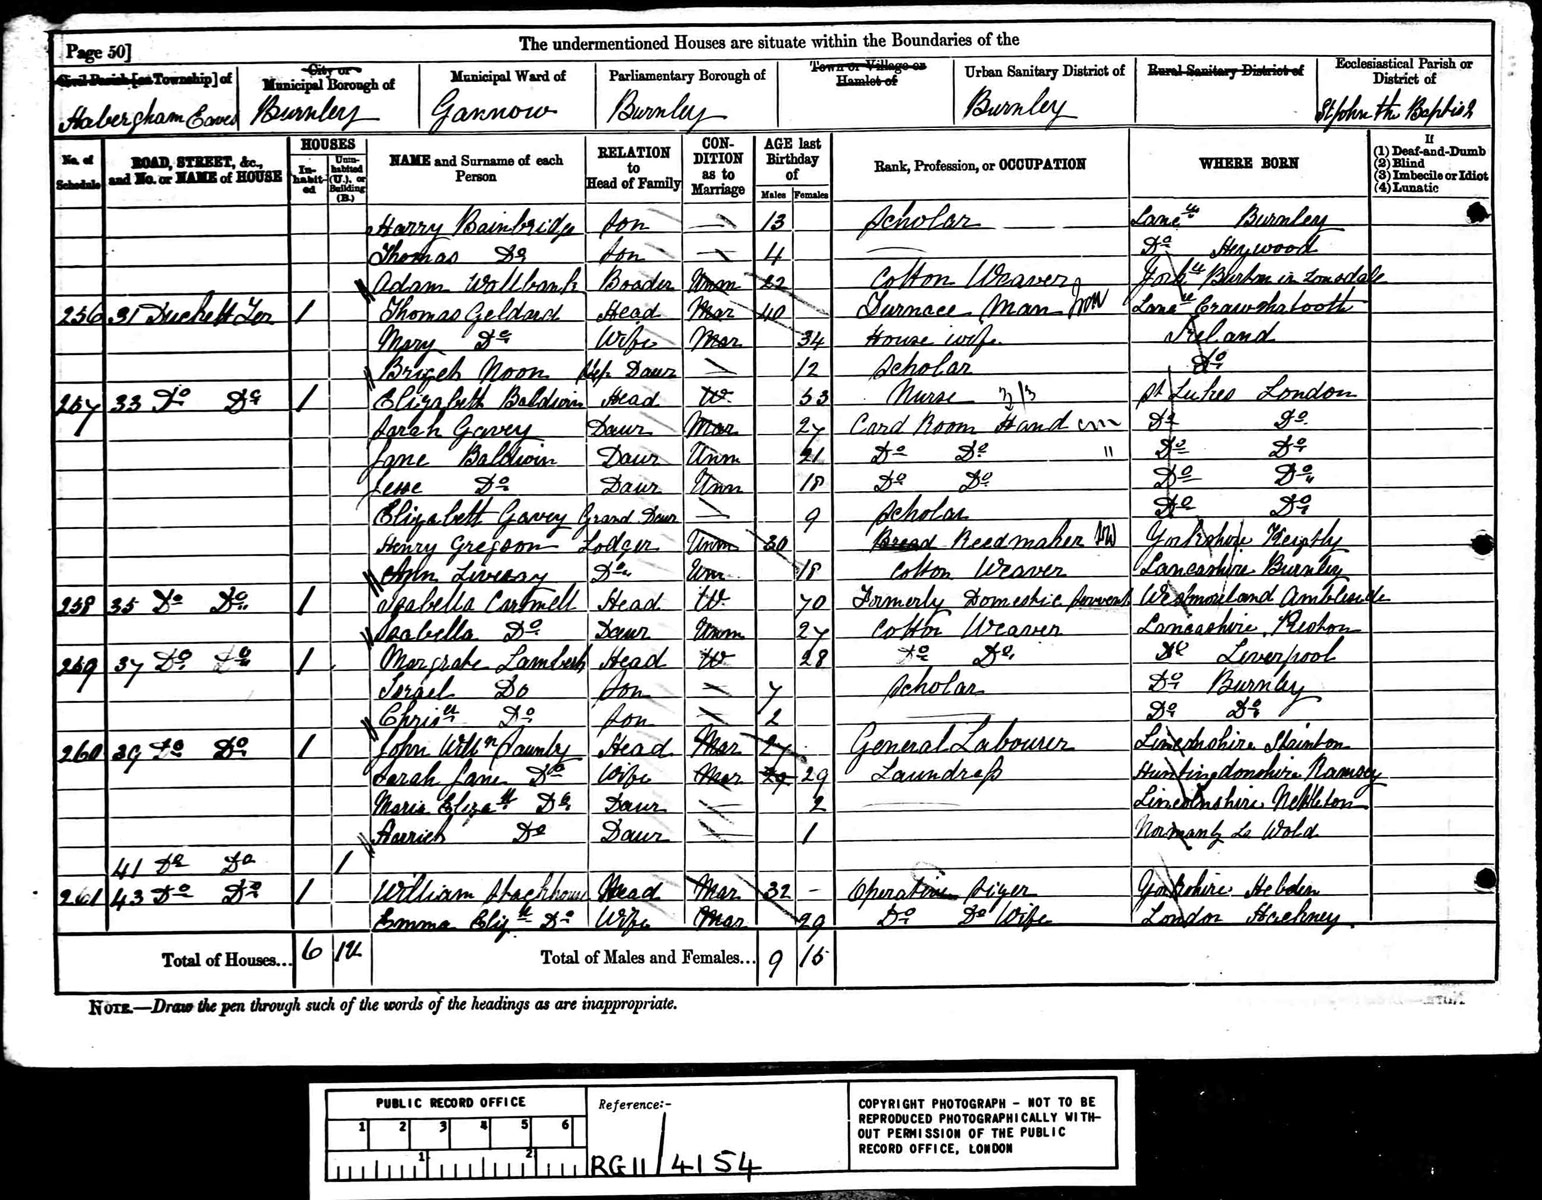 Page 50]
The undermentioned Houses are situate within the Boundaries of the
Civil Parish [or Township] of
City or Municipal Borough of
Municipal Ward of
Parliamentary Borough of
Town or Village or Hamlet of
Urban Sanitary District of
Rural Sanitary District of
Ecclesiastical Parish or District of
Habergham Eaves Burnley Gannow Burnley Burnley St John the Baptist
No. of Schedule
ROAD, STREET, &c., and No. or NAME of HOUSE
HOUSES
In-habit-ed
Unin-habited (U.), or Building (B.)
NAME and Surname of each Person
RELATION to Head of Family
CON-DITION as to Marriage
AGE last Birthday of
Males Females
Rank, Profession, or OCCUPATION
WHERE BORN
If
(1) Deaf-and-Dumb
(2) Blind
(3) Imbecile or Idiot
(4) Lunatic
Harry Bainbridge Son — 13 Scholar Lanc Burnley
Thomas Do Son — 4 Do Heywood
Adam Wollbank Boader Unm 22 Cotton Weaver York Burton in Lonsdale
256 31 Duckett Ter 1 Thomas Geldard Head Mar 40 Furnace Man Lanc Crawshabooth
Mary Do Wife Mar 34 House wife Ireland
Briget Noon Step Daur — 12 Scholar Do
257 33 Do Do 1 Elizabeth Baldwin Head W 53 Nurse St Lukes London
Sarah Gavey Daur Mar 27 Card Room Hand Do Do
Jane Baldwin Daur Unm 21 Do Do " Do Do
Jesse Do Daur Unm 18 Do Do Do Do
Elizabeth Gavey Grand Daur — 9 Scholar Do Do
Henry Gregson Lodger Unm 30 Bread Reedmaker Yorkshire Keighly
Ann Livesay Do Um 18 Cotton Weaver Lancashire Burnley
258 35 Do Do 1 Isabella Cartmell Head W 70 Formerly Domestic Servent Westmoreland Ambleside
Isabella Do Daur Unm 27 Cotton Weaver Lancashire Rishton
259 37 Do Do 1 Margrate Lambert Head W 28 Do Do Do Liverpool
Israel Do Son — 7 Scholar Do Burnley
Do Son — 2 Do Do
260 39 Do Do 1 John Willm Daunby Head Mar 27 General Labourer Lincolnshire Stainton
Sarah Jane Do Wife Mar 29 29 Laundress Huntingdonshire Ramsey
Maria Elizath Do Daur — 2 Lincolnshire Nettleton
Do Daur — 1 Normanby Le Wold
41 Do Do 1
261 43 Do Do 1 William Stackhouse Head Mar 32 – Operative Sizer Yorkshire Hebden
Emma Elizth Do Wife Mar 29 Do Do Wife London Hackney.
Total of Houses... 6 1U Total of Males and Females... 9 15
NOTE.—Draw the pen through such of the words of the headings as are inappropriate.
PUBLIC RECORD OFFICE
1 2 3 4 5 6
1 2
Reference:-
RG11/4154
COPYRIGHT PHOTOGRAPH – NOT TO BE
REPRODUCED PHOTOGRAPHICALLY WITH-
OUT PERMISSION OF THE PUBLIC
RECORD OFFICE, LONDON